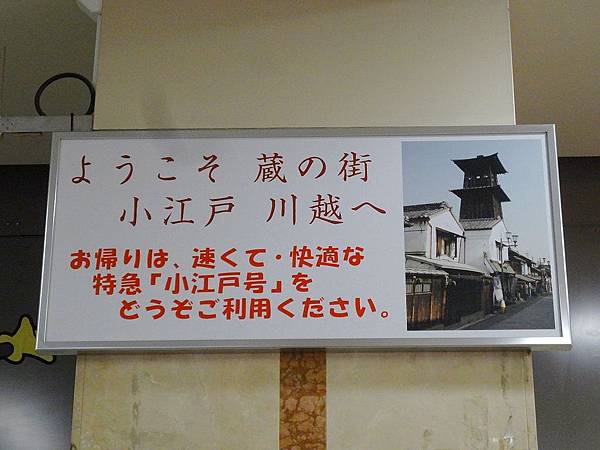 ようこそ 蔵の街
小江戸 川越へ
お帰りは、速くて・快適な
特急「小江戸号」を
どうぞご利用ください。